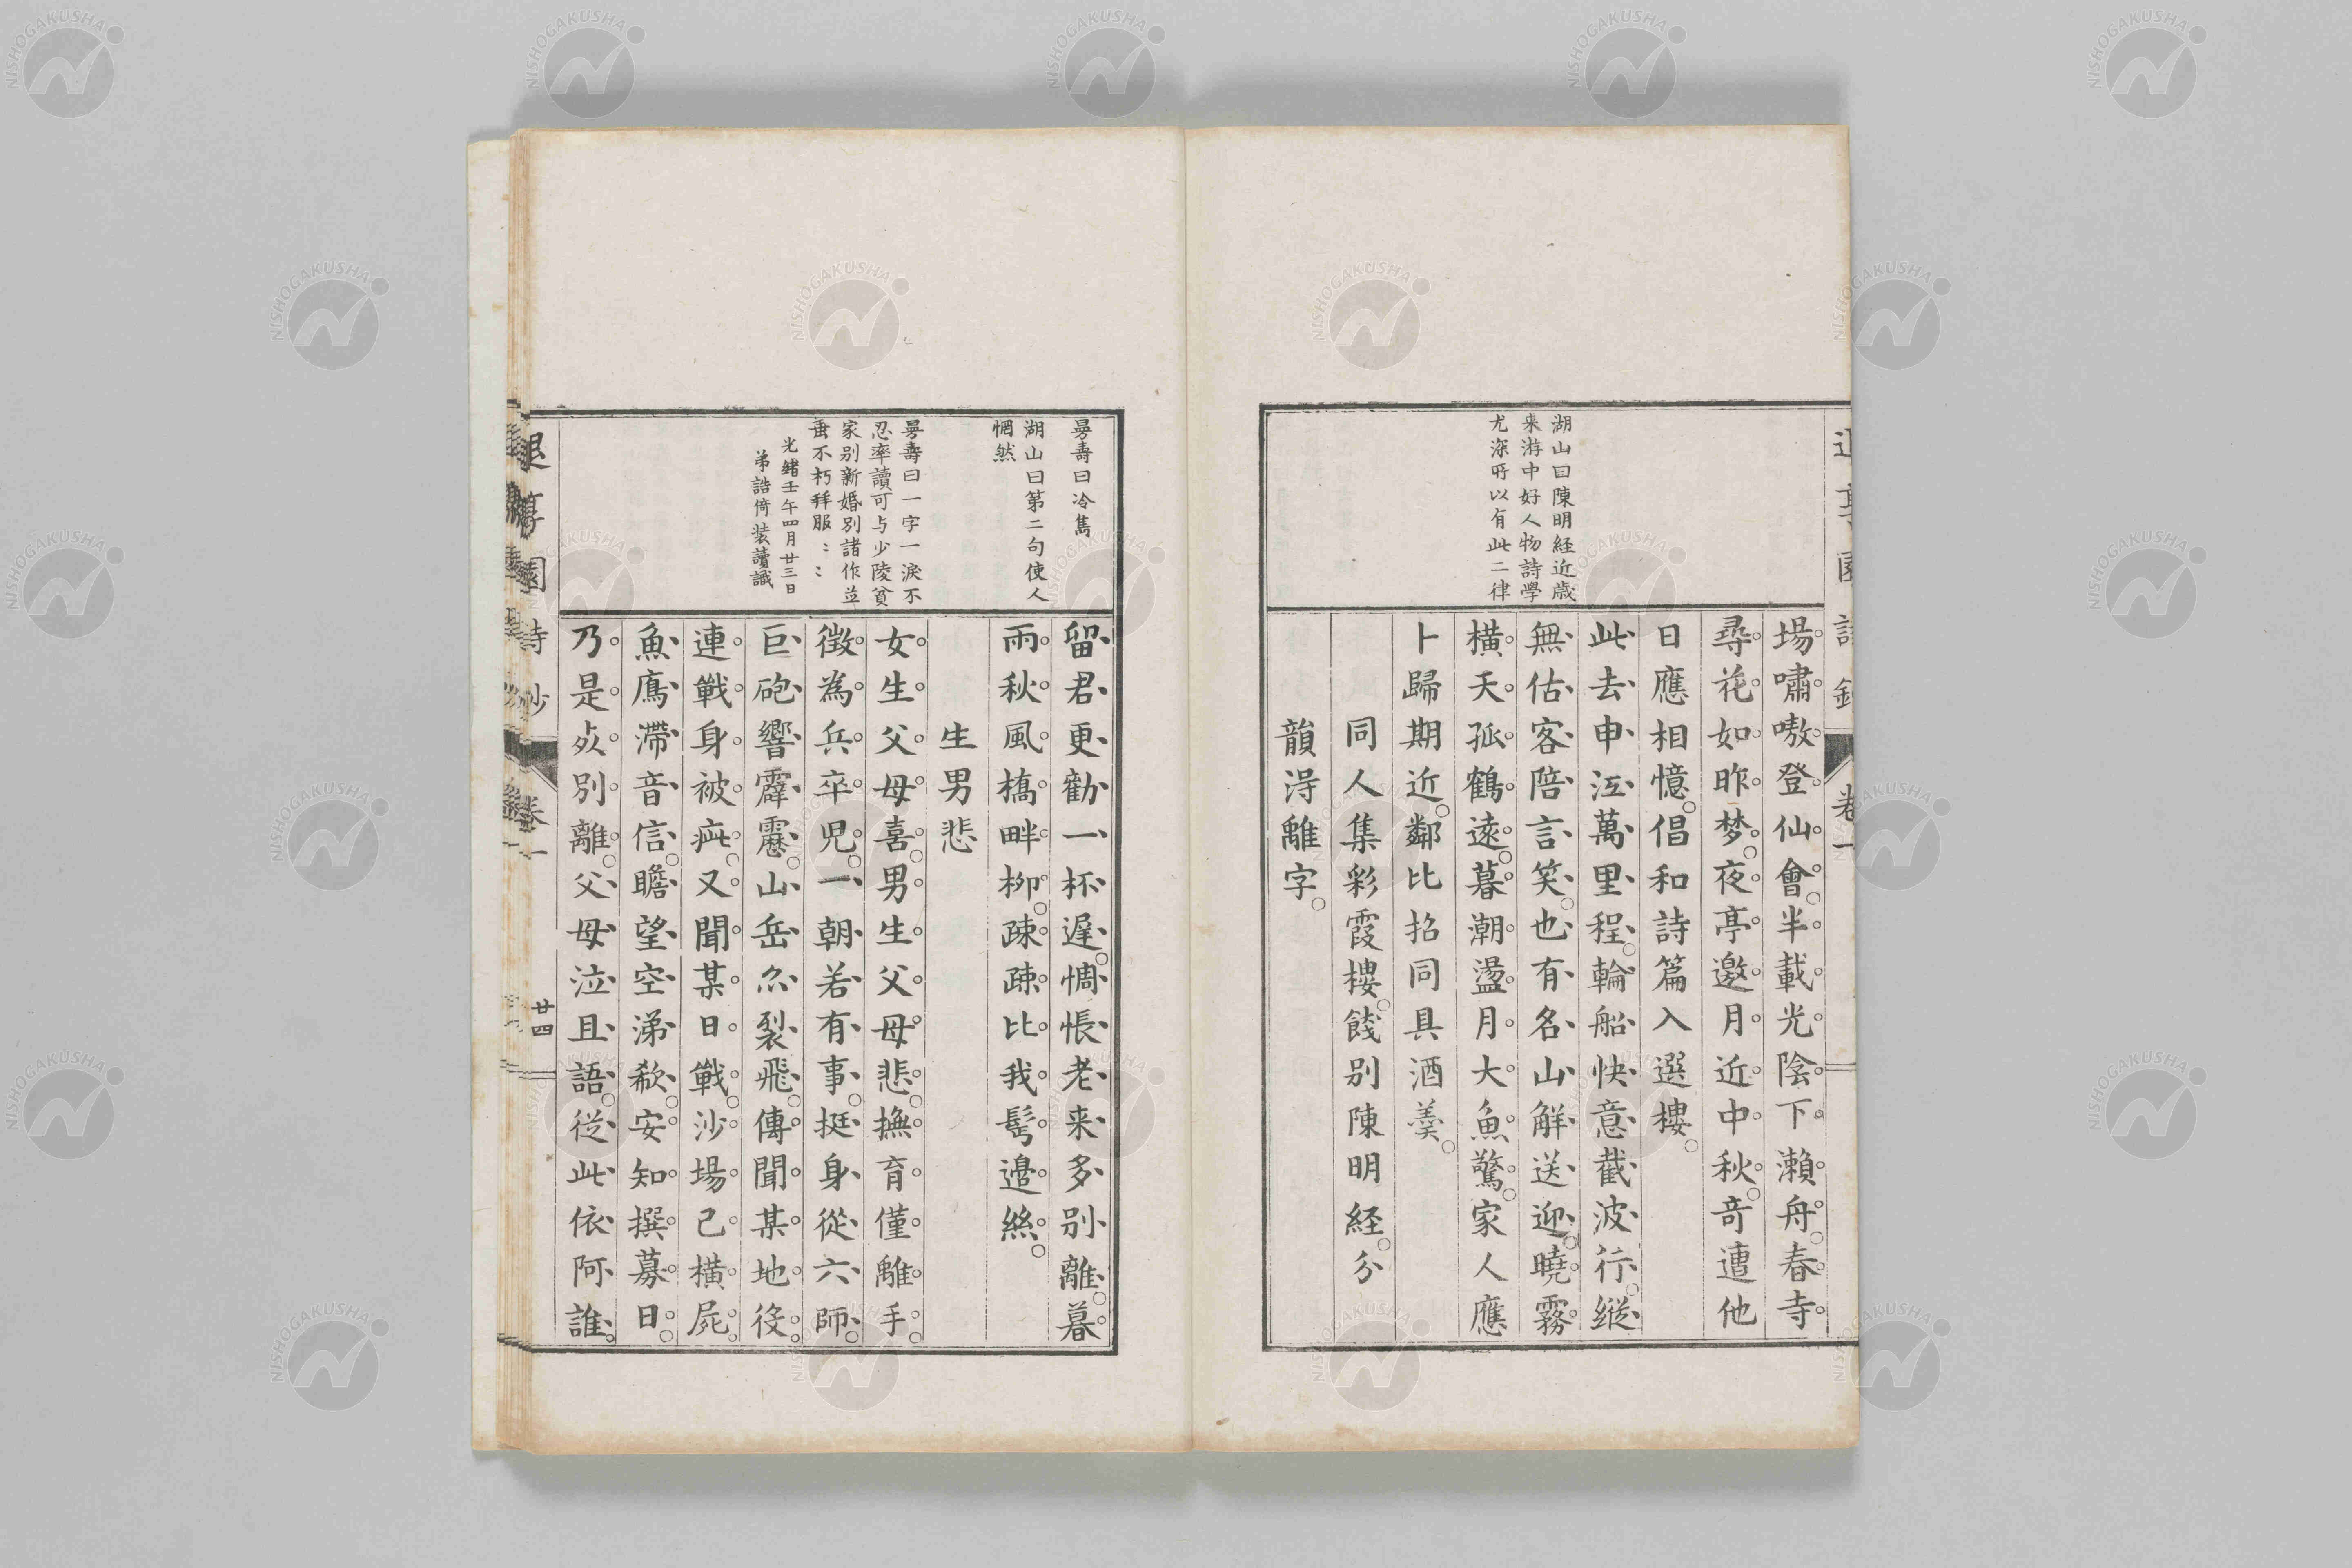 湖山曰陳明経近歳
来游中好人物詩學
尤深所以有此二律
場嘯嗷登仙會半載光陰下瀨舟春寺
尋花如昨梦夜亭邀月近中秋竒遭他
日應相憶倡和詩篇入選樓
此去申江萬里程輪船快意截波行縱
無估客陪言笑也有名山解送迎曉霧
橫天孤鶴遠暮潮盪月大魚驚家人應
卜歸期近鄰比招同具酒羹
同人集彩霞樓餞別陳明経分
韻淂離字
卷一
曇壽曰冷雋
湖山曰第二句使人
惘然
曇壽曰一字一淚不
忍率讀可与少陵貧
家别新婚别諸作並
垂不朽拜服〻〻
光緒壬午四月廿三日
弟誥倚装讀識
留君更勸一杯遲惆悵老来多别離暮
雨秋風橋畔柳疎疎比我髩邉絲
生男悲
女生父母喜男生父母悲撫育僅離手
徴為兵卒兒一朝若有事挺身從六師
巨砲響霹靂山岳尒裂飛傳聞某地役
連戰身被疵又聞某日戰沙場己橫屍
魚鴈滯音信瞻望空涕欷安知撰募日
乃是㱠别離父母泣且語從此依阿誰
退享園詩鈔
卷一
廿四
NISHOGAKUSHA